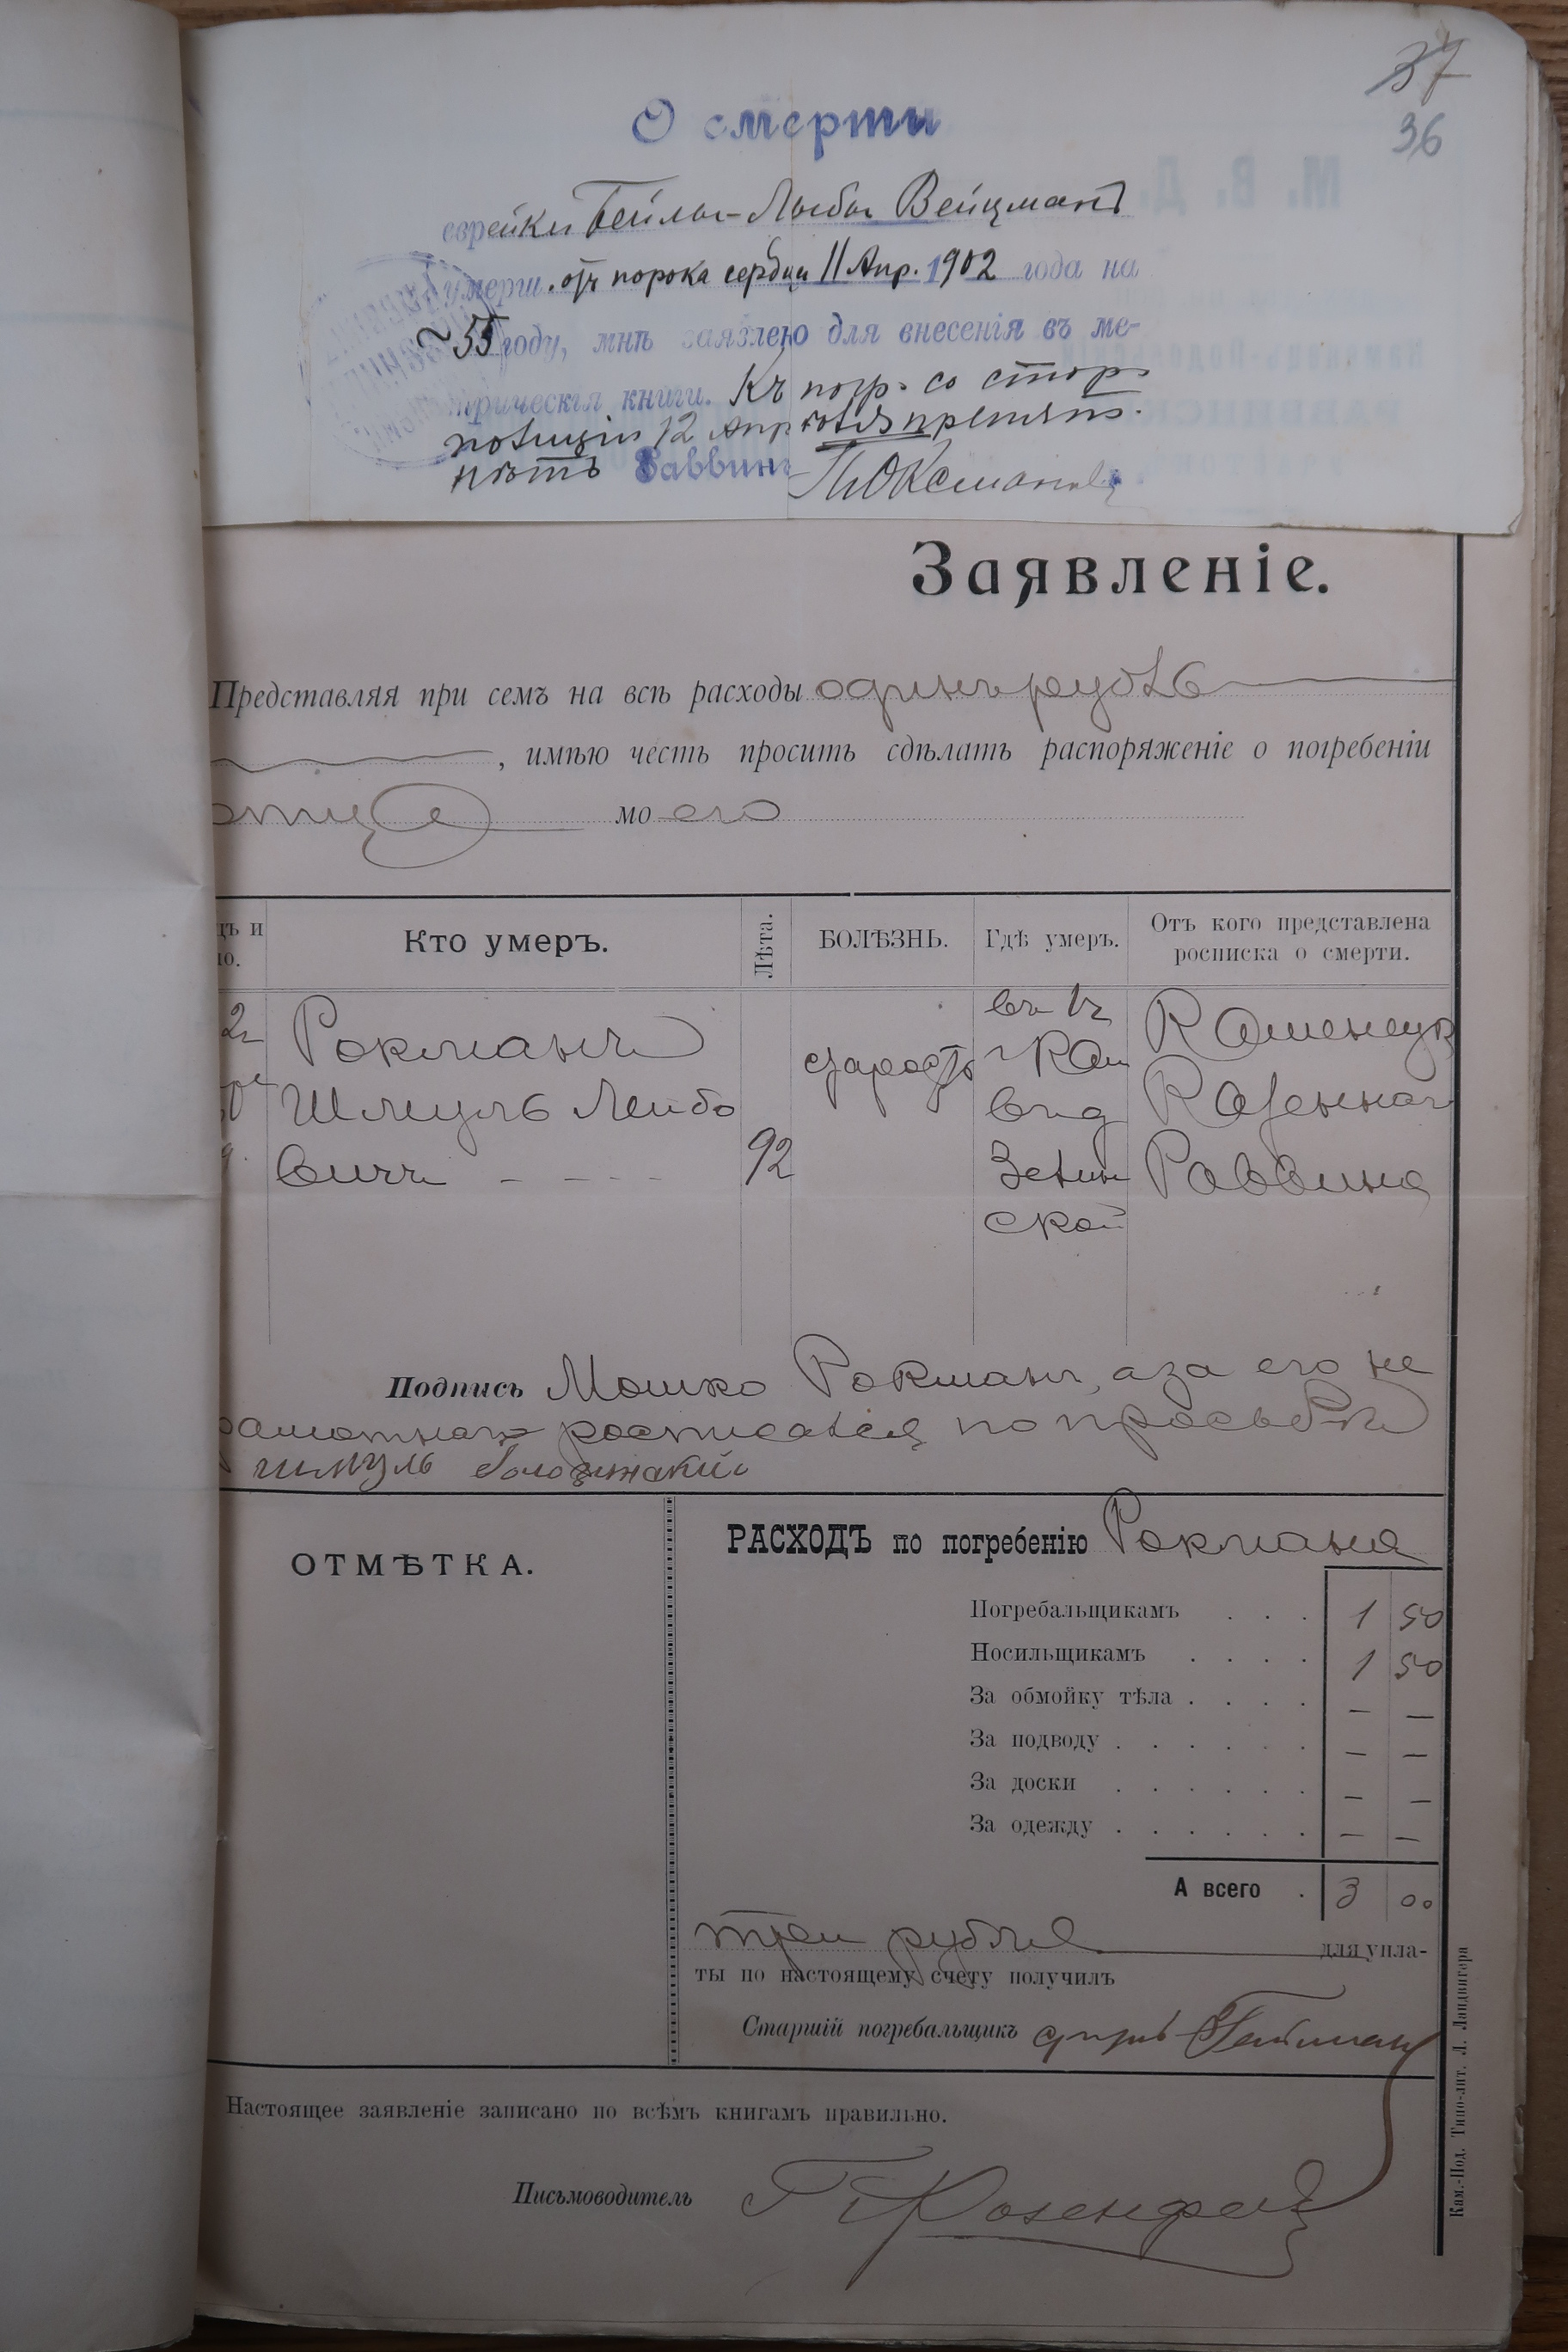 37
36
О смерти
еврейки Бейлы-Лыбы Вейцманъ
умерш. отъ порока сердца 11 Апр. 1902 года на
55 году, мнѣ заявлено для внесенія въ ме-
трическія книги. Къ погр. со стор.
полиціи 12 Апр препят.
нѣтъ Раввинъ
Заявленіе.
Представляя при семъ на всѣ расходы одинъ рубль
, имѣю честь просить сдѣлать распоряженіе о погребеніи
отца моего
цъ и
ло.
Кто умеръ.
Лѣта.
БОЛѢЗНЬ.
Гдѣ умеръ.
Отъ кого представлена
росписка о смерти.
Рокманъ
Шмуль Лейбо
вичъ
92
старость
въ
г Кам
больн
Зелин
ской
Каменецк
Казеннаго
Раввина
Подпись Мошко Рокманъ, а за его не
грамотнаго росписался по просьбѣ
Шмуль
ОТМѢТКА.
РАСХОДЪ по погребенію Рокмана
Погребальщикамъ . . . 1 50
Носильщикамъ . . . . 1 50
За обмойку тѣла . . . . — —
За подводу . . . . . . — —
За доски . . . . . . — —
За одежду . . . . . . — —
А всего . 3 00
три рубля для упла-
ты по настоящему счету получилъ
Старшій погребальщикъ
Настоящее заявленіе записано по всѣмъ книгамъ правильно.
Письмоводитель Г Розенфельд
Кам.-Под. Типо-лит. Л. Ландвигера